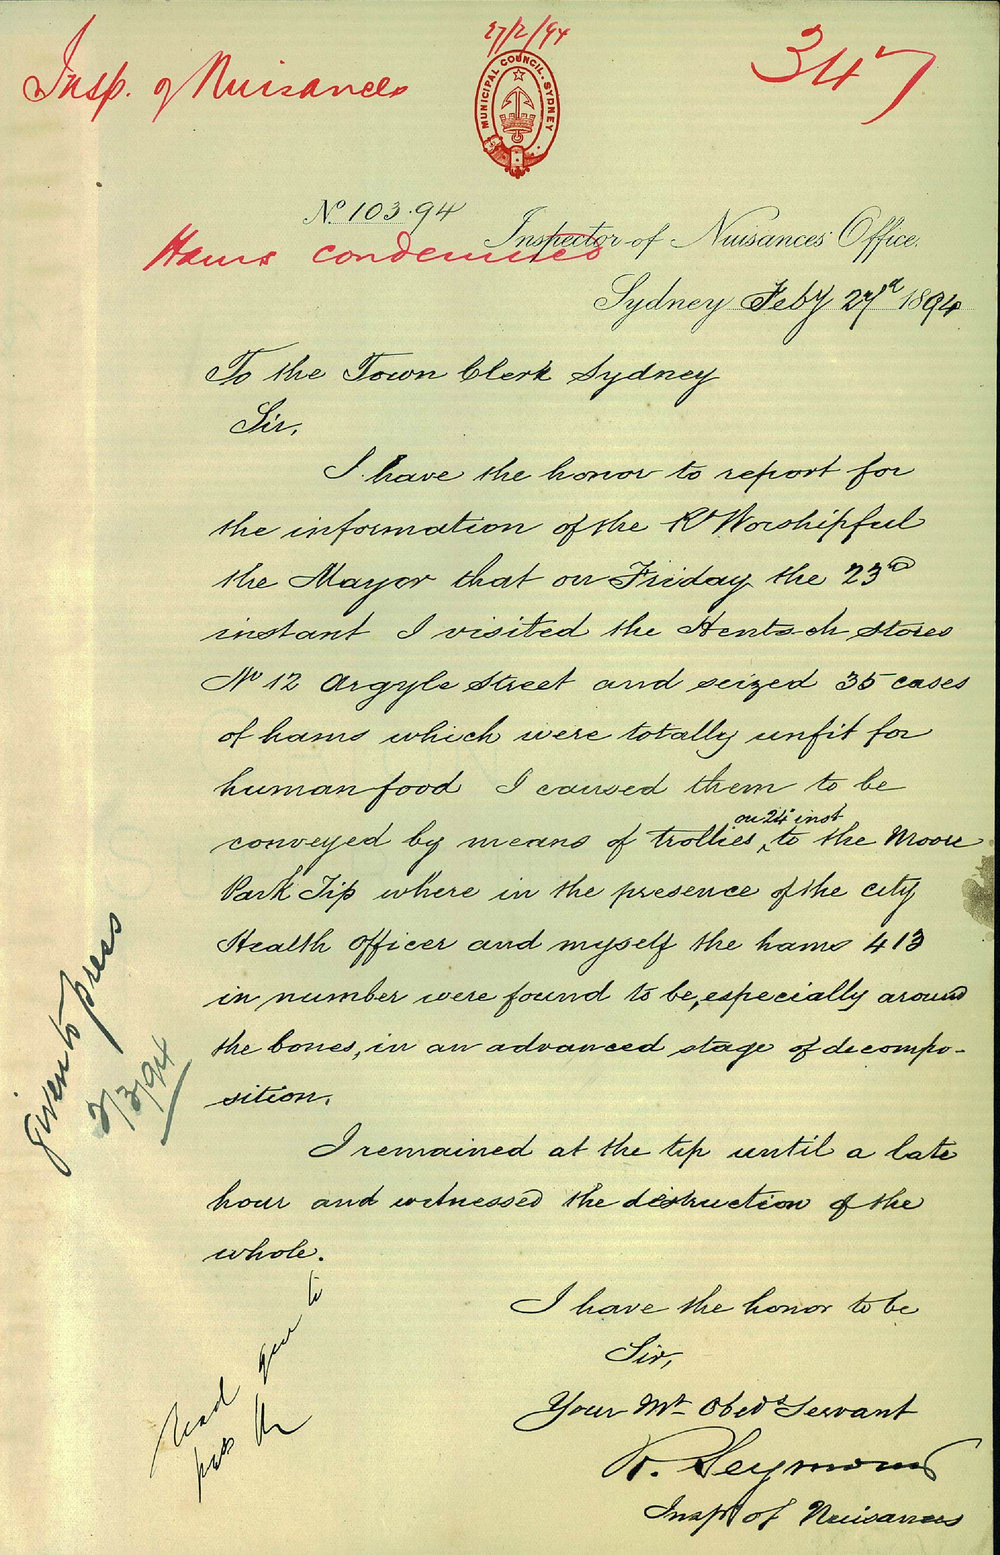 27/2/94
Insp. of Nuisances
347
MUNICIPAL COUNCIL. SYDNEY
No. 103.94
Hams condemned
Inspector of Nuisances' Office.
Sydney Feby 27th 1894
To the Town Clerk Sydney
Sir,
I have the honor to report for
the information of the Rt Worshipful
the Mayor that on Friday the 23rd
instant I visited the Hentsch Stores
No 12 Argyle Street and seized 35 cases
of hams which were totally unfit for
human food I caused them to be
on 24th inst
conveyed by means of trollies, to the Moore
Park Tip where in the presence of the city
Health Officer and myself the hams 413
in number were found to be, especially around
the bones, in an advanced stage of decompo-
sition.
I remained at the tip until a late
hour and witnessed the destruction of the
whole.
I have the honor to be
Sir,
Your Mt Obedt Servant
R. Seymour
Inspr of Nuisances
given to press
2/3/94
Read give to